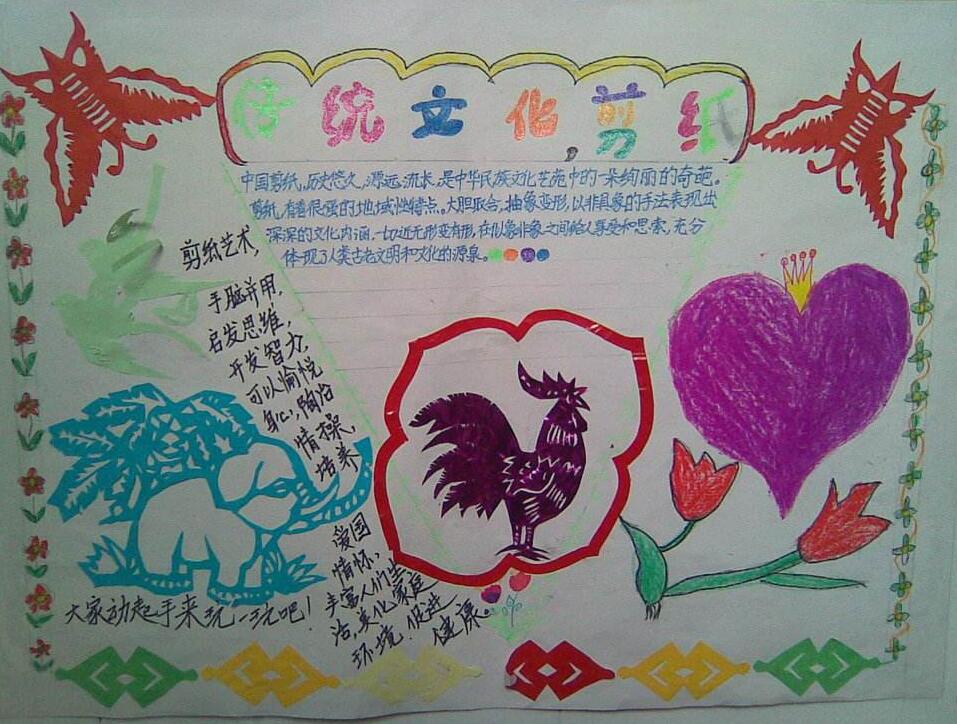 传统文化,剪纸
中国剪纸,历史悠久,源远流长,是中华民族文化艺苑中的一朵绚丽的奇葩。
剪纸,有着很强的地域性特点。大胆取舍,抽象变形,以非具象的手法表现出
深深的文化内涵,一切近无形变有形,在似象非象之间给人享受和思索,充分
体现了人类古老文明和文化的源泉。
剪纸艺术,
手脑并用,
启发思维,
开发智力,
可以愉悦
身心,陶冶
情操,
培养
爱国
情怀,
丰富人们生
活,美化家庭
环境,促进
健康。
大家动起手来玩一玩吧!